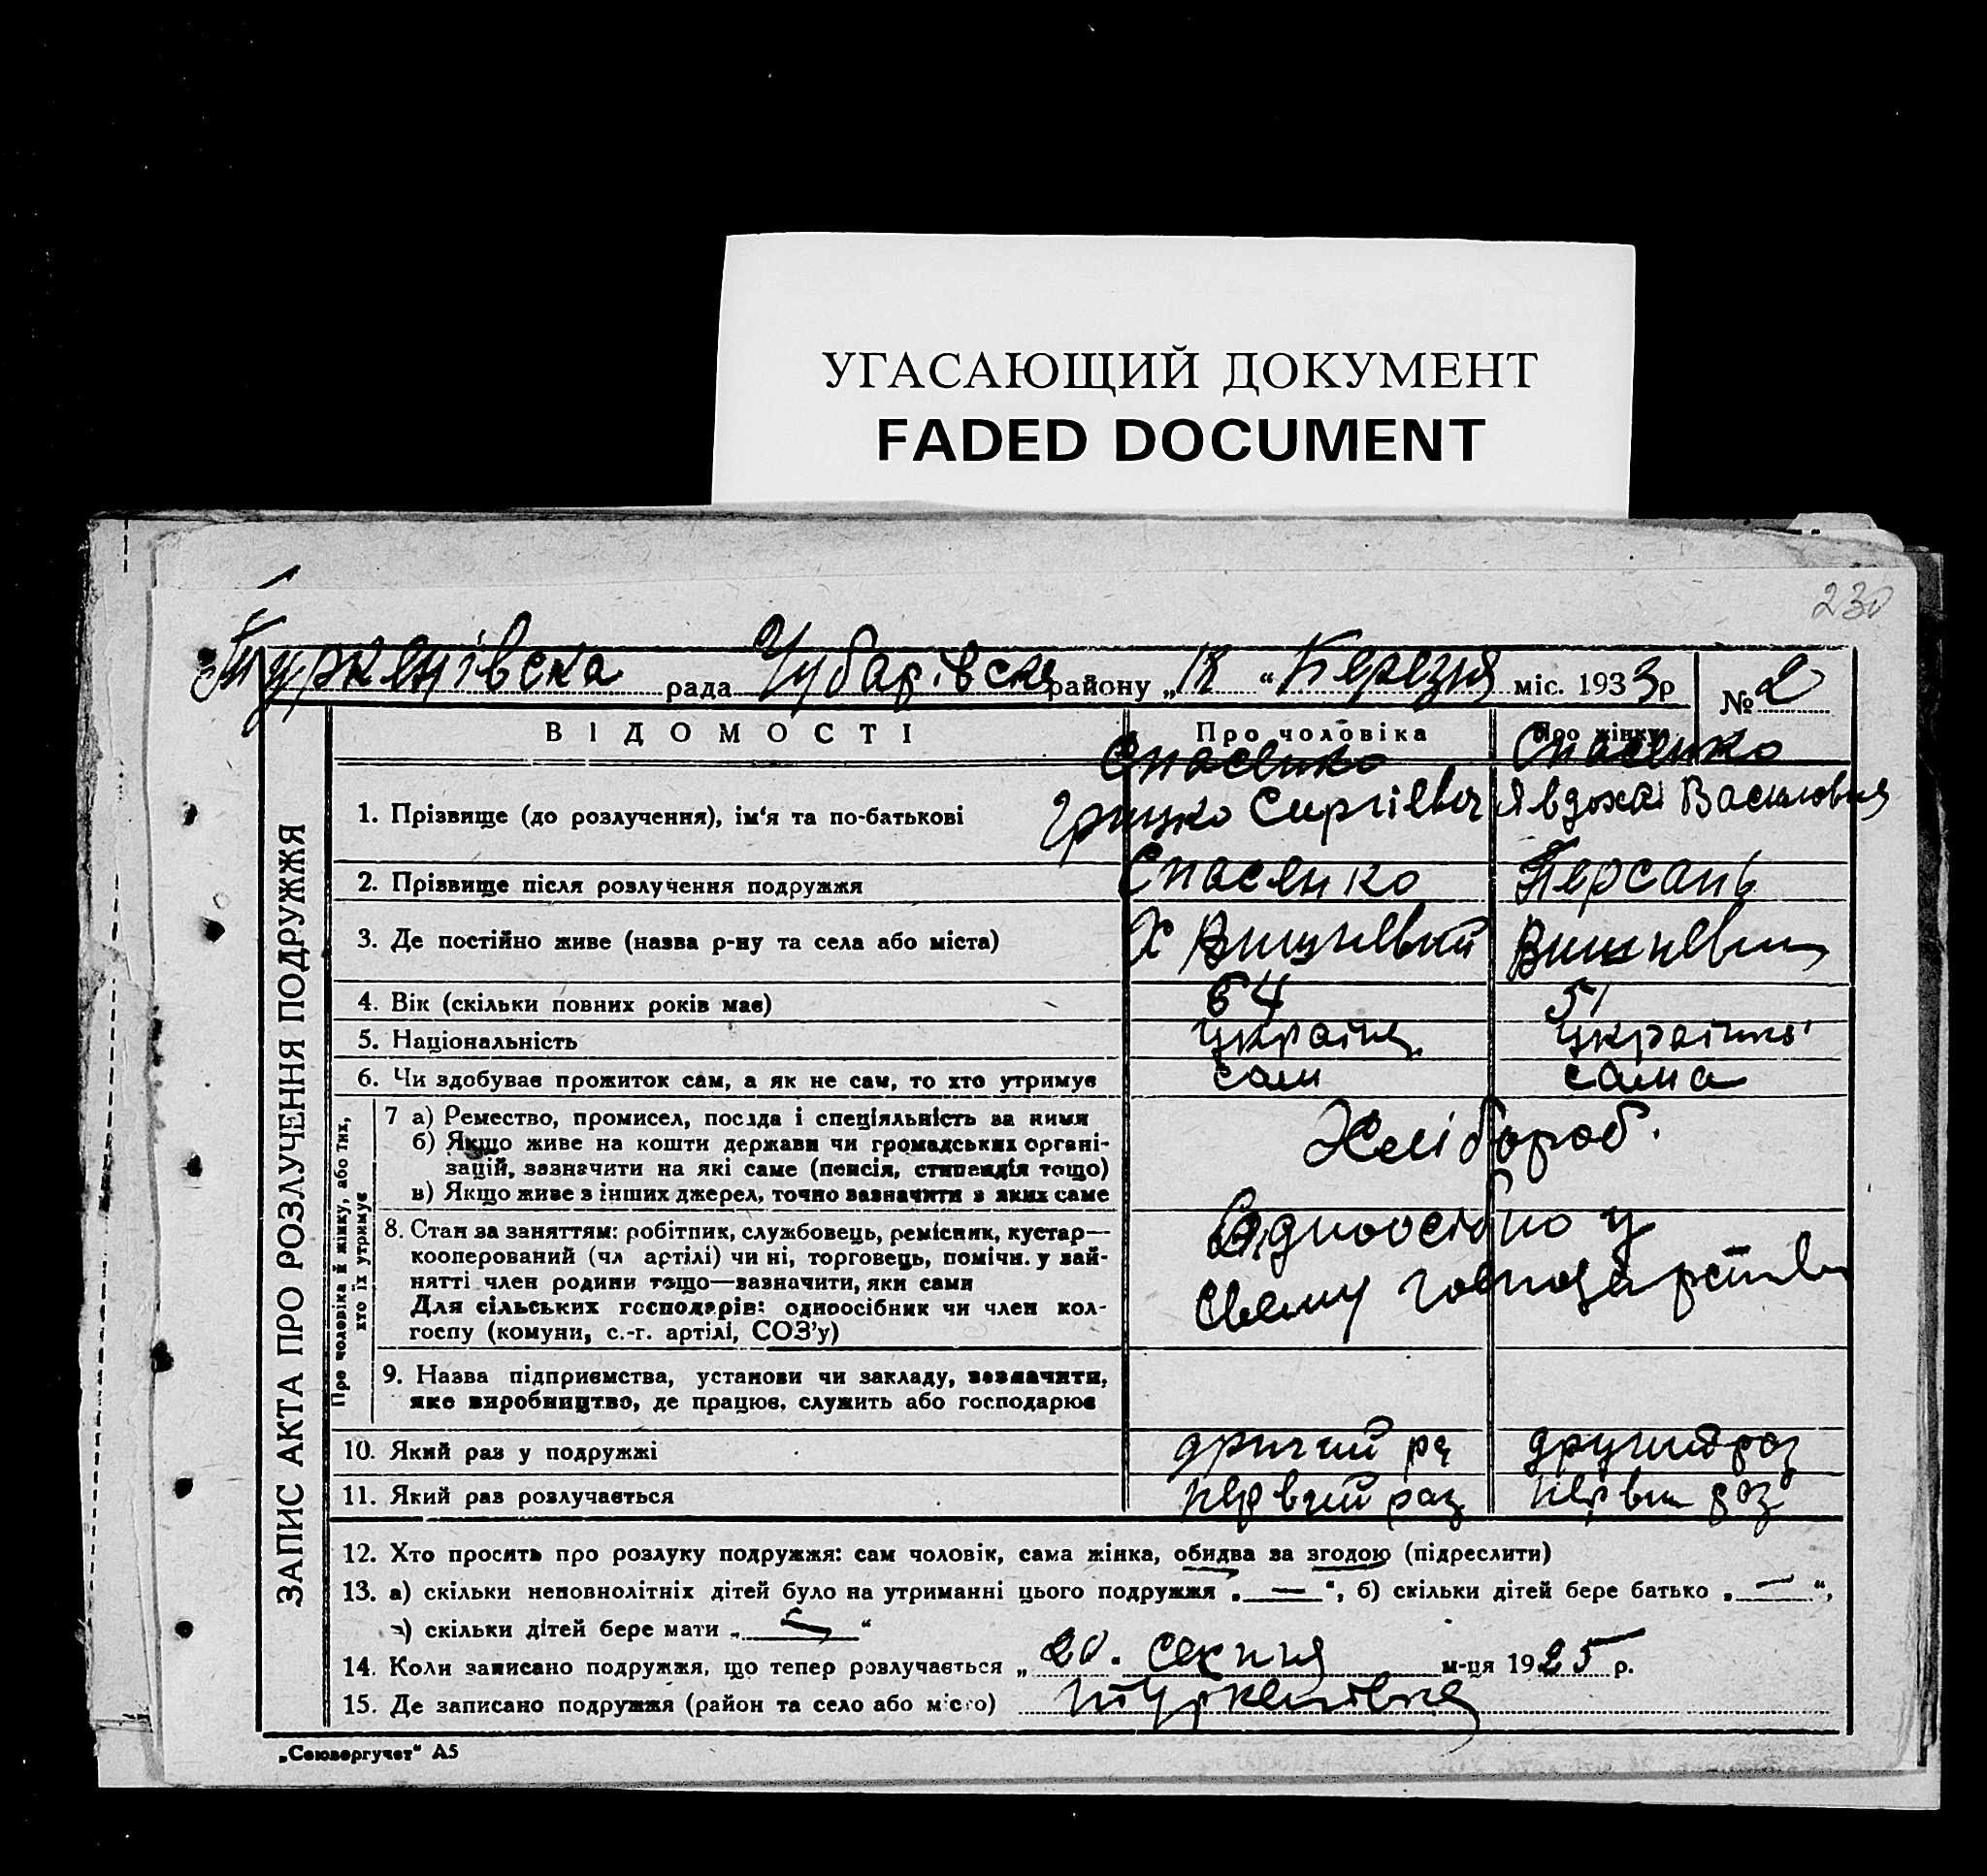 УГАСАЮЩИЙ ДОКУМЕНТ
FADED DOCUMENT
230
Туркенівська рада Чубарівске району „18 “ Березня міс. 1933 р № 2
ЗАПИС АКТА ПРО РОЗЛУЧЕННЯ ПОДРУЖЖЯ
ВІДОМОСТІ Про чоловіка Про жінку
Спасенко Спасенко
1. Прізвище (до розлучення), ім'я та по-батькові Грицко Сиргієвич Явдоха Василовня
2. Прізвище після розлучення подружжя Спасенко Персань
3. Де постійно живе (назва р-ну та села або міста) Х Вишневий
4. Вік (скільки повних років має) 64 51
5. Національність україне українка
6. Чи здобуває прожиток сам, а як не сам, то хто утримує сам сама
Про чоловіка й жінку, або тих,
хто їх утримує
7 а) Ремество, промисел, посада і спеціяльність за ними
б) Якщо живе на кошти держави чи громадських органі-
зацій, зазначити на які саме (пенсія, стипендія тощо)
в) Якщо живе з інших джерел, точно зазначити з яких саме
Хлібороб.
8. Стан за заняттям: робітник, службовець, ремісник, кустар—
кооперований (чл артілі) чи ні, торговець, помічн. у зай-
нятті член родини тощо—зазначити, яки сами
Для сільських господарів: одноосібник чи член кол-
госпу (комуни, с.-г. артілі, СОЗ'у)
Одноосібно у
свему господарстві
9. Назва підприємства, установи чи закладу, зазначити,
яке виробництво, де працює, служить або господарює
10. Який раз у подружжі другий ра другий раз
11. Який раз розлучається первий раз первий раз
12. Хто просить про розлуку подружжя: сам чоловік, сама жінка, обидва за згодою (підреслити)
13. а) скільки неповнолітніх дітей було на утриманні цього подружжя „ — “, б) скільки дітей бере батько „ — “,
в) скільки дітей бере мати „ — “
14. Коли записано подружжя, що тепер розлучається „ 20. Серпня м-ця 1925 р.
15. Де записано подружжя (район та село або місто) Туркенівка
„Союзоргучет“ А5